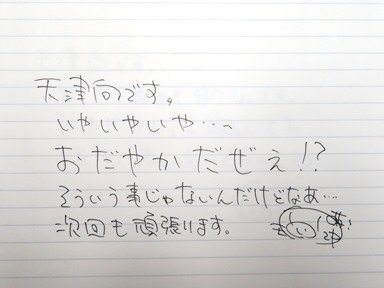 天津向です。
いやいやいや…〜
おだやかだぜぇ!?
そういう事じゃないんだけどなあ…
次回も頑張ります。